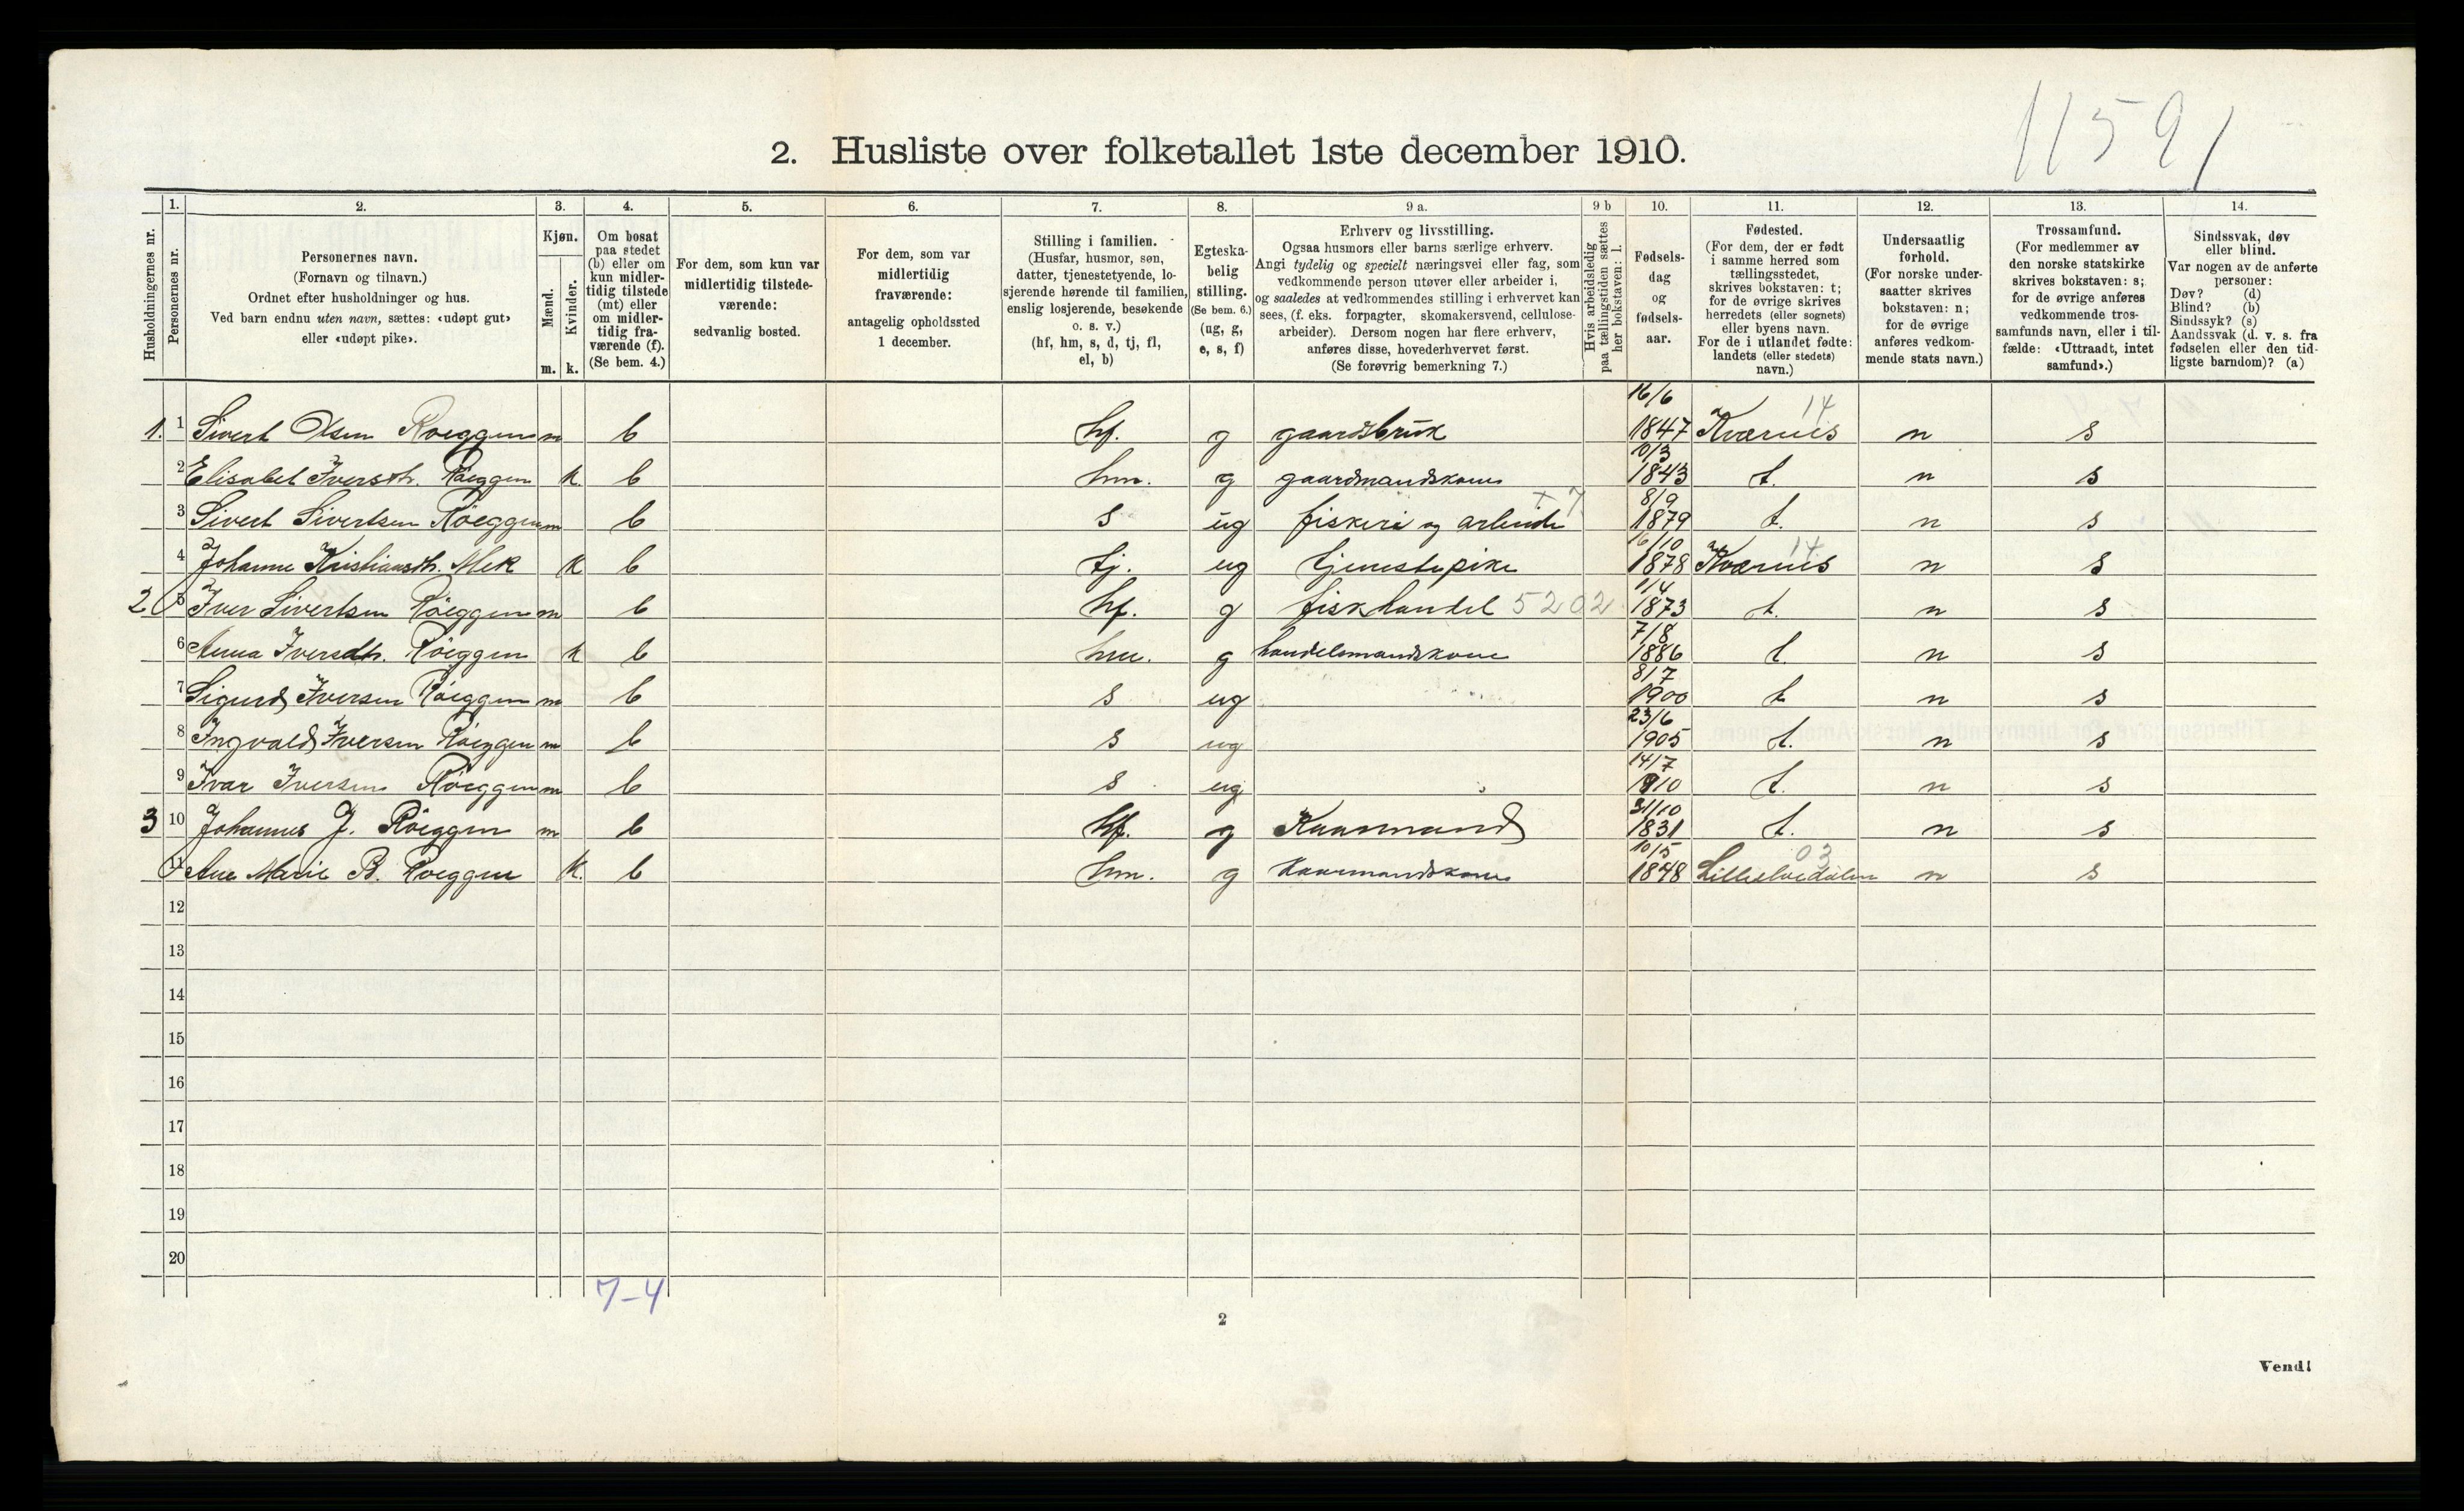 11591
2. Husliste over folketallet 1ste december 1910.
Husholdningernes nr.
1. Personernes nr.
2. Personernes navn. (Fornavn og tilnavn.) Ordnet efter husholdninger og hus. Ved barn endnu uten navn, sættes: «udøpt gut» eller «udøpt pike».
3. Kjøn. Mænd. m. Kvinder. k.
4. Om bosat paa stedet (b) eller om kun midlertidig tilstede (mt) eller om midlertidig fraværende (f). (Se bem. 4.)
5. For dem, som kun var midlertidig tilstedeværende: sedvanlig bosted.
6. For dem, som var midlertidig fraværende: antagelig opholdssted 1 december.
7. Stilling i familien. (Husfar, husmor, søn, datter, tjenestetyende, losjerende hørende til familien, enslig losjerende, besøkende o. s. v.) (hf, hm, s, d, tj, fl, el, b)
8. Egteskabelig stilling. (Se bem. 6.) (ug, g, e, s, f)
9 a. Erhverv og livsstilling. Ogsaa husmors eller barns særlige erhverv. Angi tydelig og specielt næringsvei eller fag, som vedkommende person utøver eller arbeider i, og saaledes at vedkommendes stilling i erhvervet kan sees, (f. eks. forpagter, skomakersvend, cellulosearbeider). Dersom nogen har flere erhverv, anføres disse, hovederhvervet først. (Se forøvrig bemerkning 7.)
9 b Hvis arbeidsledig paa tællingstiden sættes her bokstaven: l.
10. Fødselsdag og fødselsaar.
11. Fødested. (For dem, der er født i samme herred som tællingsstedet, skrives bokstaven: t; for de øvrige skrives herredets (eller sognets) eller byens navn. For de i utlandet fødte: landets (eller stedets) navn.)
12. Undersaatlig forhold. (For norske undersaatter skrives bokstaven: n; for de øvrige anføres vedkommende stats navn.)
13. Trossamfund. (For medlemmer av den norske statskirke skrives bokstaven: s; for de øvrige anføres vedkommende trossamfunds navn, eller i tilfælde: «Uttraadt, intet samfund».)
14. Sindssvak, døv eller blind. Var nogen av de anførte personer: Døv? (d) Blind? (b) Sindssyk? (s) Aandssvak (d. v. s. fra fødselen eller den tidligste barndom)? (a)
1. 1 Sivert Olsen Røeggen m b hf. g gaardsbruk 16/6 1847 Kværnes 14 n s
2 Elisabet Iversdtr. Røeggen k b hm. g gaardmandskone 10/3 1843 t. n s
3 Sivert Sivertsen Røeggen m b s ug fiskeri og arbeide + 7 8/9 1879 t. n s
4 Johanne Kristiansdtr. Mek k b tj. ug tjenestepike 16/10 1878 Kværnes 14 n s
2 5 Iver Sivertsen Røeggen m b hf. g fiskhandel 5202 1/4 1873 t. n s
6 Anna Iversdtr. Røeggen k b hm. g handelsmandskone 7/8 1886 t. n s
7 Sigurd Iversen Røeggen m b s ug 8/7 1900 t n s
8 Ingvald Iversen Røeggen m b s ug 23/6 1905 t. n s
9 Ivar Iversen Røeggen m b s ug 14/7 1910 t. n s
3 10 Johannes J. Røeggen m b hf. g Kaarmand 31/10 1831 t. n s
11 Ane Marie B. Røeggen k. b hm. g Kaarmandskone 10/5 1848 Lilleelvedalen 03 n s
12
13
14
15
16
17
18
19
20
7-4
2
Vend!